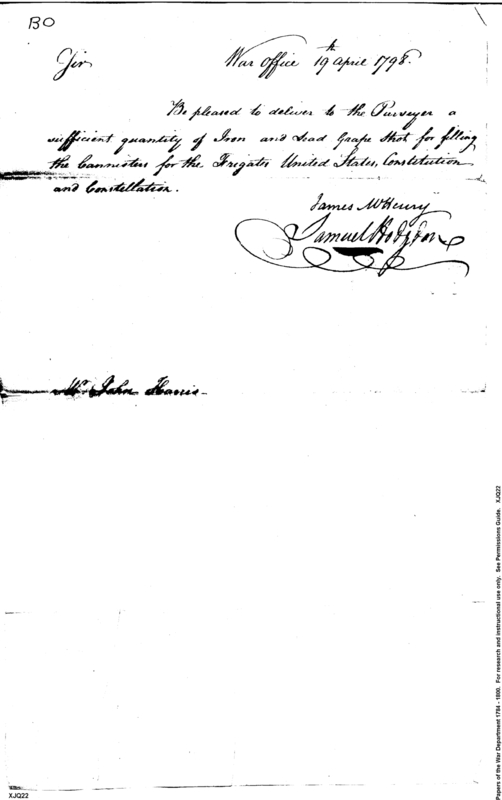 BO
War Office 19th April 1798.
Sir
Be pleased to deliver to the Purveyer a
sufficient quantity of Iron and Lead Grape Shot for filling
the Cannisters for the Frigates United States, Constitution
and Constellation.
James McHenry
Samuel Hodgdon
Mr John Harris
Papers of the War Department 1784 - 1800. For research and instructional use only. See Permissions Guide. XJQ22
XJQ22